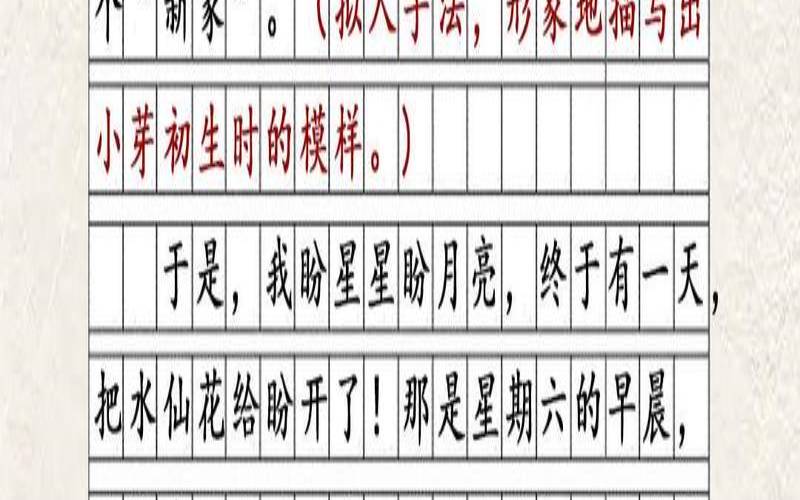 个“新家”。（拟人手法，形象地描写出
小芽初生时的模样。）
于是，我盼星星盼月亮，终于有一天，
把水仙花给盼开了！那是星期六的早晨，